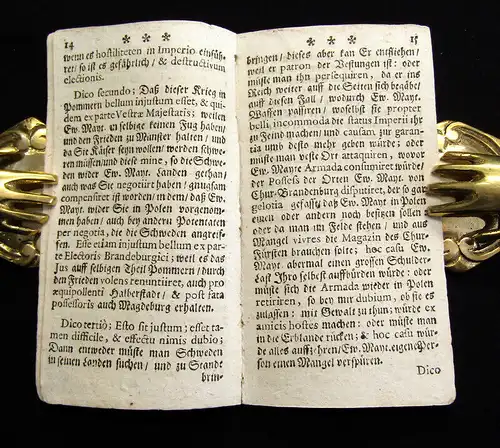 14
* * *
wenn es hostiliteten in Imperio einführet/
ret/ so ist es gefährlich/ & destructivum
electionis.
Dico secundo; Daß dieser Krieg in
Pommern bellum injustum esset, & quidem
ex parte Vestræ Majestatis; weilen
Ew. Mayt. zu selbige keinen Fug haben/
und den Frieden zu Münster halten/ und
da Sie Käiser seyn wollen/ werden schweren
müssen/ und diese mine, so die Schweden
wider Ew. Mayt. Landen gethan/
auch was Sie negotiirt haben/ gnugsam
compensiret worden/ in dem/ daß Ew.
Mayt. wider Sie in Polen vorgenommen
haben/ auch bey andern Potentaten
per negotia, die die Schweden angreffen.
Esse etiam injustum bellum ex parte
Electoris Brandeburgici; weil es das
Jus auff selbigen Theil Pommern/ durch
den Frieden volens renuntiiret, auch pro
æquipollenti Halberstadt/ & post fata
possessoris auch Magdeburg erhalten.
Dico tertiò; Esto sit justum; esset tamen
difficile, & effectu nimis dubio;
Dann entweder müste man Schweden
in seinen Landen suchen/ und zu Stande
brin-
* * *
15
bringen/ dieses aber kan Er entfliehen/
weil er patron der Vestungen ist: oder
müste man ihn persequiren, da er ins
Reich weiter auff die Seiten sich begäbe
auff diesen Fall/ wodurch Ew. Mayt.
Waffen passiren/ woselbst sie propter
belli incommoda die status Imperii ihr
zu Feind machen/ und causam zur garantia
und desto mehr geben würde; oder
müste man veste Ort attaquiren, wovor
Ew. Mayte Armada consumiret würde/
der Possess der Orten Ew. Mayt. von
Chur-Brandenburg disputiret, der so gar
gelotia gefast/ daß Ew. Mayt in Polen
einen oder andern noch besitzen sollen
oder da man im Felde stehen/ und aus
Mangel vivres die Magazin des Chur-
Fürsten brauchen solte; hoc casu Ew.
Mayt. abermal einen grossen Schulder-
Last Ihro selbest auffbürden würde: oder
müste sich die Armada wieder in Polen
retiriren, so bey mir dubium, ob sie es
zulassen: mit Gewalt zu thun; würde ex
amicis hostes machen: oder müste man
in die Erblande rücken; & hoc casu würde
alles auffzehren/ Ew. Mayt. eigene Person
einen Mangel verspüren.
Dico